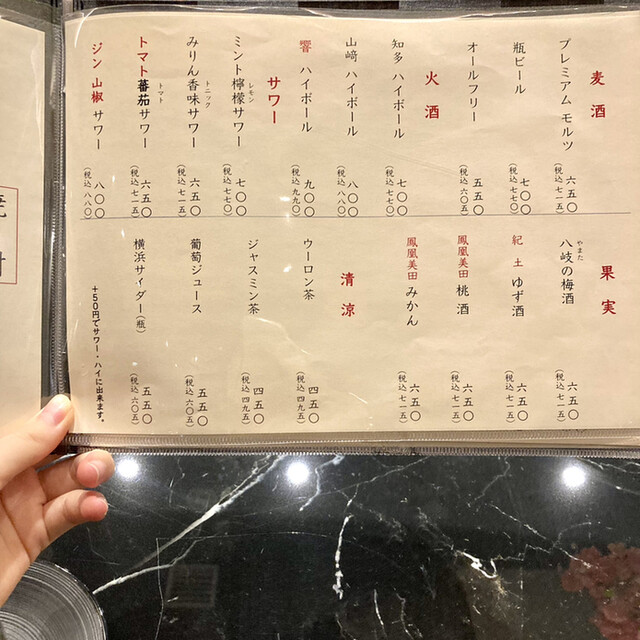 麦酒
プレミアム モルツ 六五〇
(税込 七一五)
瓶ビール 七〇〇
(税込 七七〇)
オールフリー 五五〇
(税込 六〇五)
火酒
知多 ハイボール 七〇〇
(税込 七七〇)
山﨑 ハイボール 八〇〇
(税込 八八〇)
響 ハイボール 九〇〇
(税込 九九〇)
サワー
ミント檸檬サワー 七〇〇
レモン
(税込 七七〇)
みりん香味サワー 六五〇
トニック
(税込 七一五)
トマト蕃茄サワー 六五〇
トマト
(税込 七一五)
ジン 山椒 サワー 八〇〇
(税込 八八〇)
果実
やまた
八岐の梅酒 六五〇
(税込 七一五)
紀土 ゆず酒 六五〇
(税込 七一五)
鳳凰美田 桃酒 六五〇
(税込 七一五)
鳳凰美田 みかん 六五〇
(税込 七一五)
清涼
ウーロン茶 四五〇
(税込 四九五)
ジャスミン茶 四五〇
(税込 四九五)
葡萄ジュース 五五〇
(税込 六〇五)
横浜サイダー(瓶) 五五〇
(税込 六〇五)
+50円でサワー・ハイに出来ます。